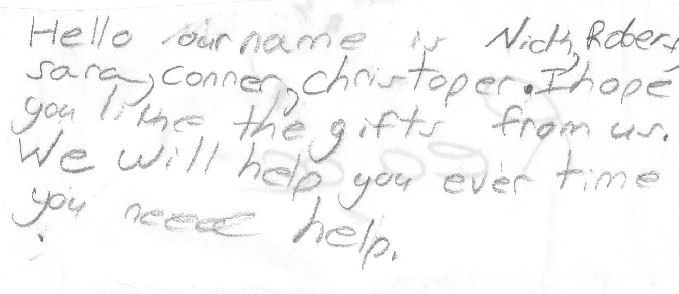 Hello our name is Nick, Robert,
sara, Conner, christoper. I hope
you like the gifts from us.
We will help you ever time
you need help.